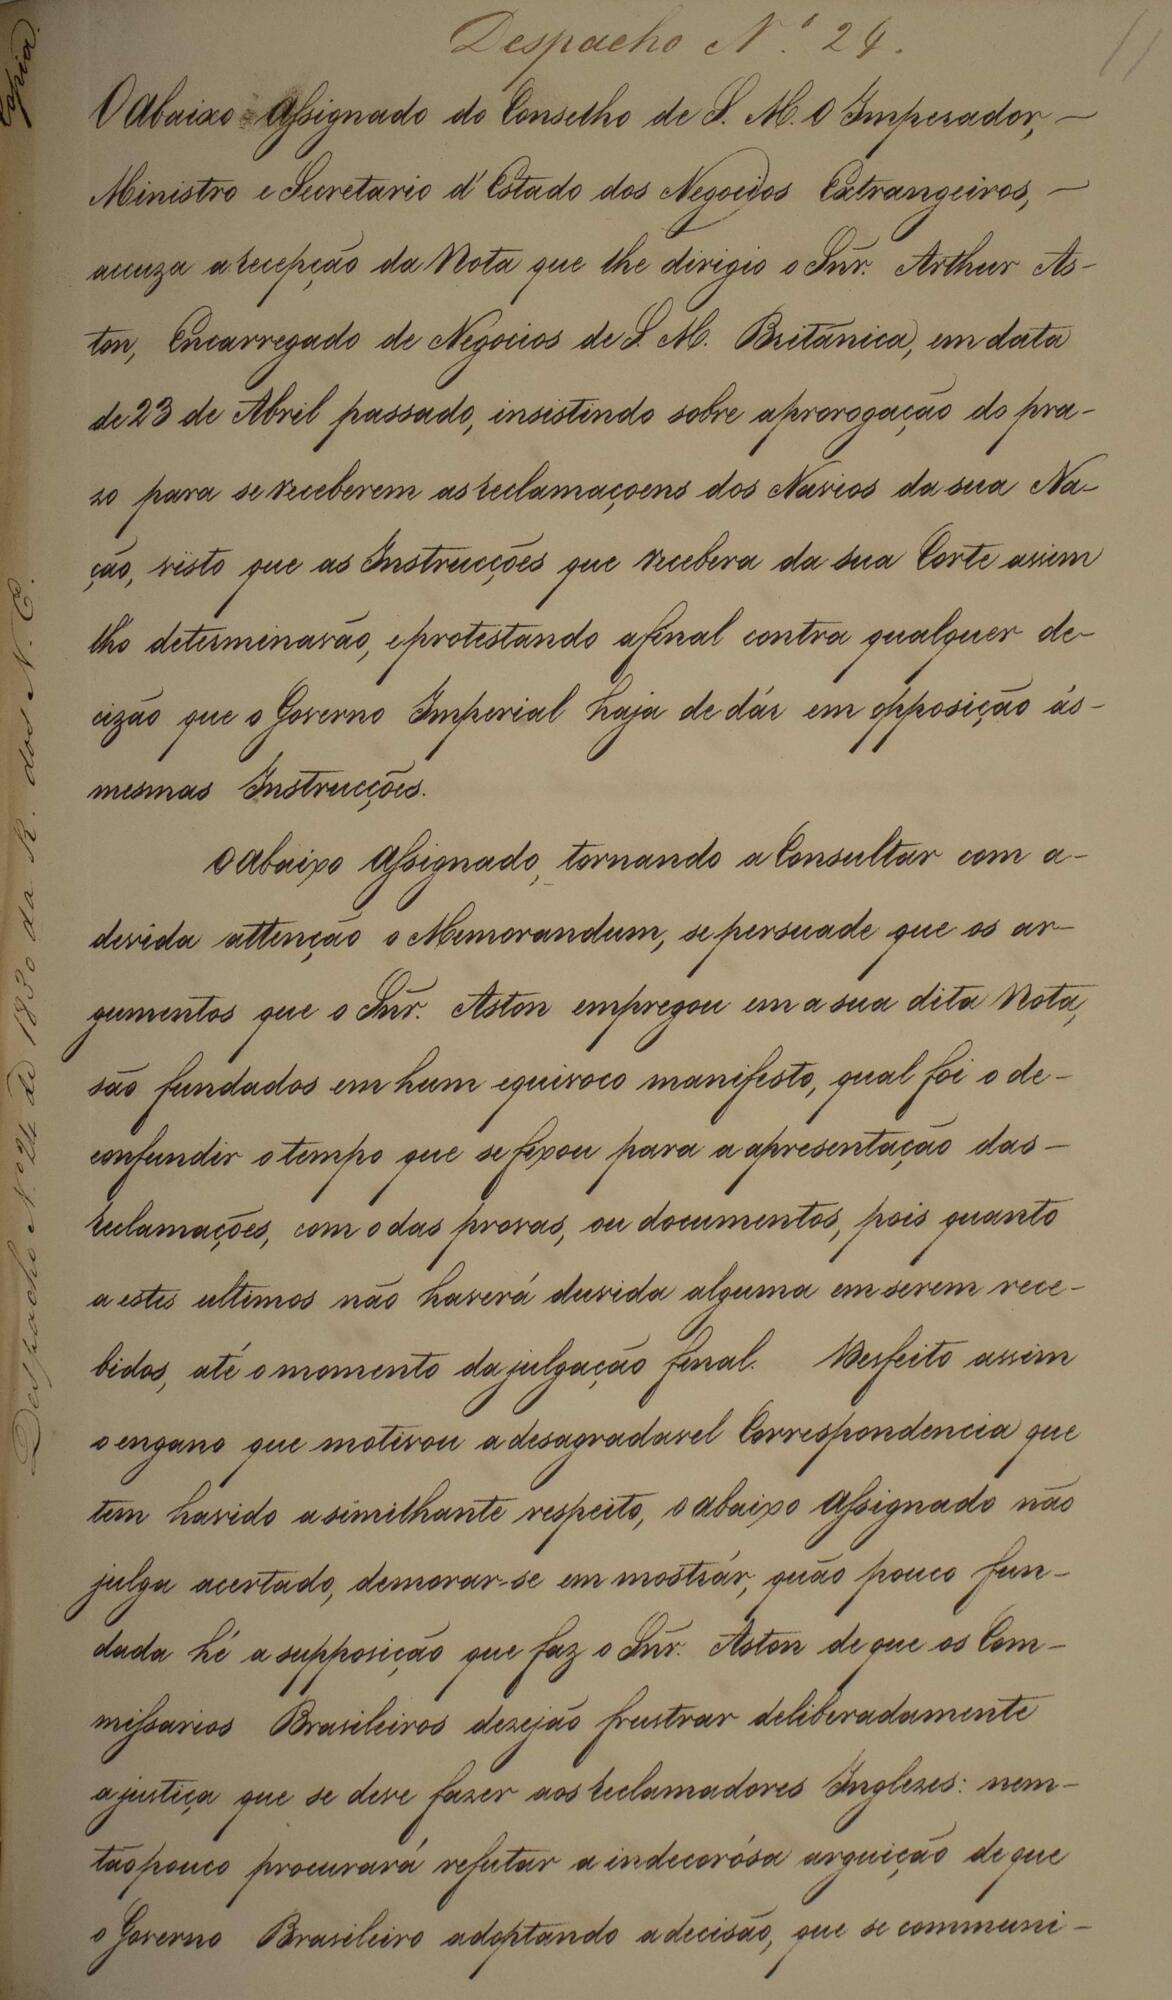 Despacho N.º 24.
O Abaixo Assignado do Conselho de S. M. O Imperador, —
Ministro e Secretario d'Estado dos Negocios Extrangeiros, —
accuza a recepção da Nota que lhe dirigio o Snr. Arthur As-
ton, Encarregado de Negocios de S. M. Britânica, em data
de 23 de Abril passado, insistindo sobre a prorogação do pra-
so para se receberem as reclamaçoens dos Navios da sua Na-
ção, visto que as Instrucções que recebera da sua Corte assim
lho determinavão, e protestando afinal contra qualquer de-
cizão que o Governo Imperial haja de dár em opposição ás-
mesmas Instrucções.
O Abaixo Assignado, tornando a Consultar com a-
devida attenção o Memorandum, se persuade que os ar-
gumentos que o Snr. Aston empregou em a sua dita Nota,
são fundados em hum equivoco manifesto, qual foi o de-
confundir o tempo que se fixou para a apresentação das-
reclamações, com o das provas, ou documentos, pois quanto
a estes ultimos não haverá duvida alguma em serem rece-
bidos, até o momento da julgação final. Desfeito assim
o engano que motivou a desagradavel Correspondencia que
tem havido a similhante respeito, o abaixo Assignado não
julga acertado, demorar-se em mostrár, quão pouco fun-
dada hé a supposição que faz o Snr. Aston de que os Com-
missarios Brasileiros dezejão frustrar deliberadamente
a justiça que se deve fazer aos reclamadores Inglezes: nem-
tão pouco procurará refutar a indecorósa arguição de que
o Governo Brasileiro adoptando a decisão, que se communi-
Copia.
Despacho N.º 24 de 1830 da R. dos N. E.
11